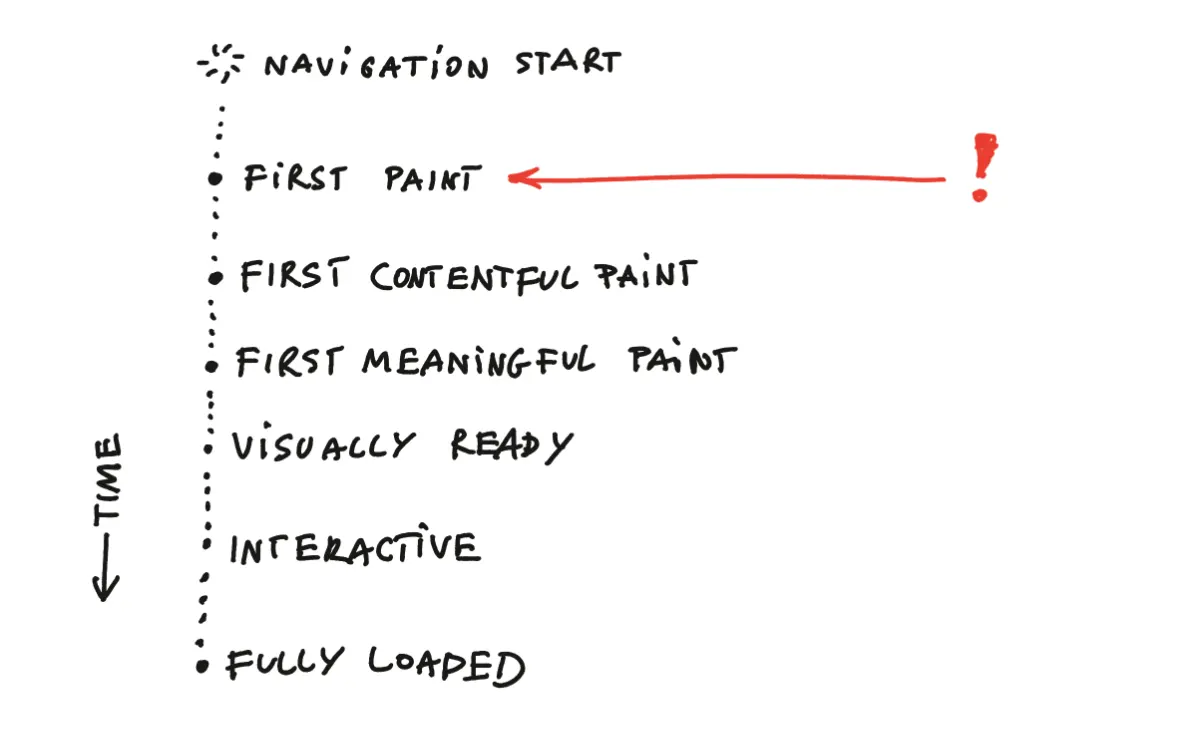 NAVIGATION START
FIRST PAINT
!
FIRST CONTENTFUL PAINT
FIRST MEANINGFUL PAINT
VISUALLY READY
TIME
INTERACTIVE
FULLY LOADED